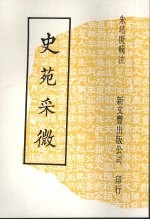 朱培庚輯注
史苑采微
新文豐出版公司 印行